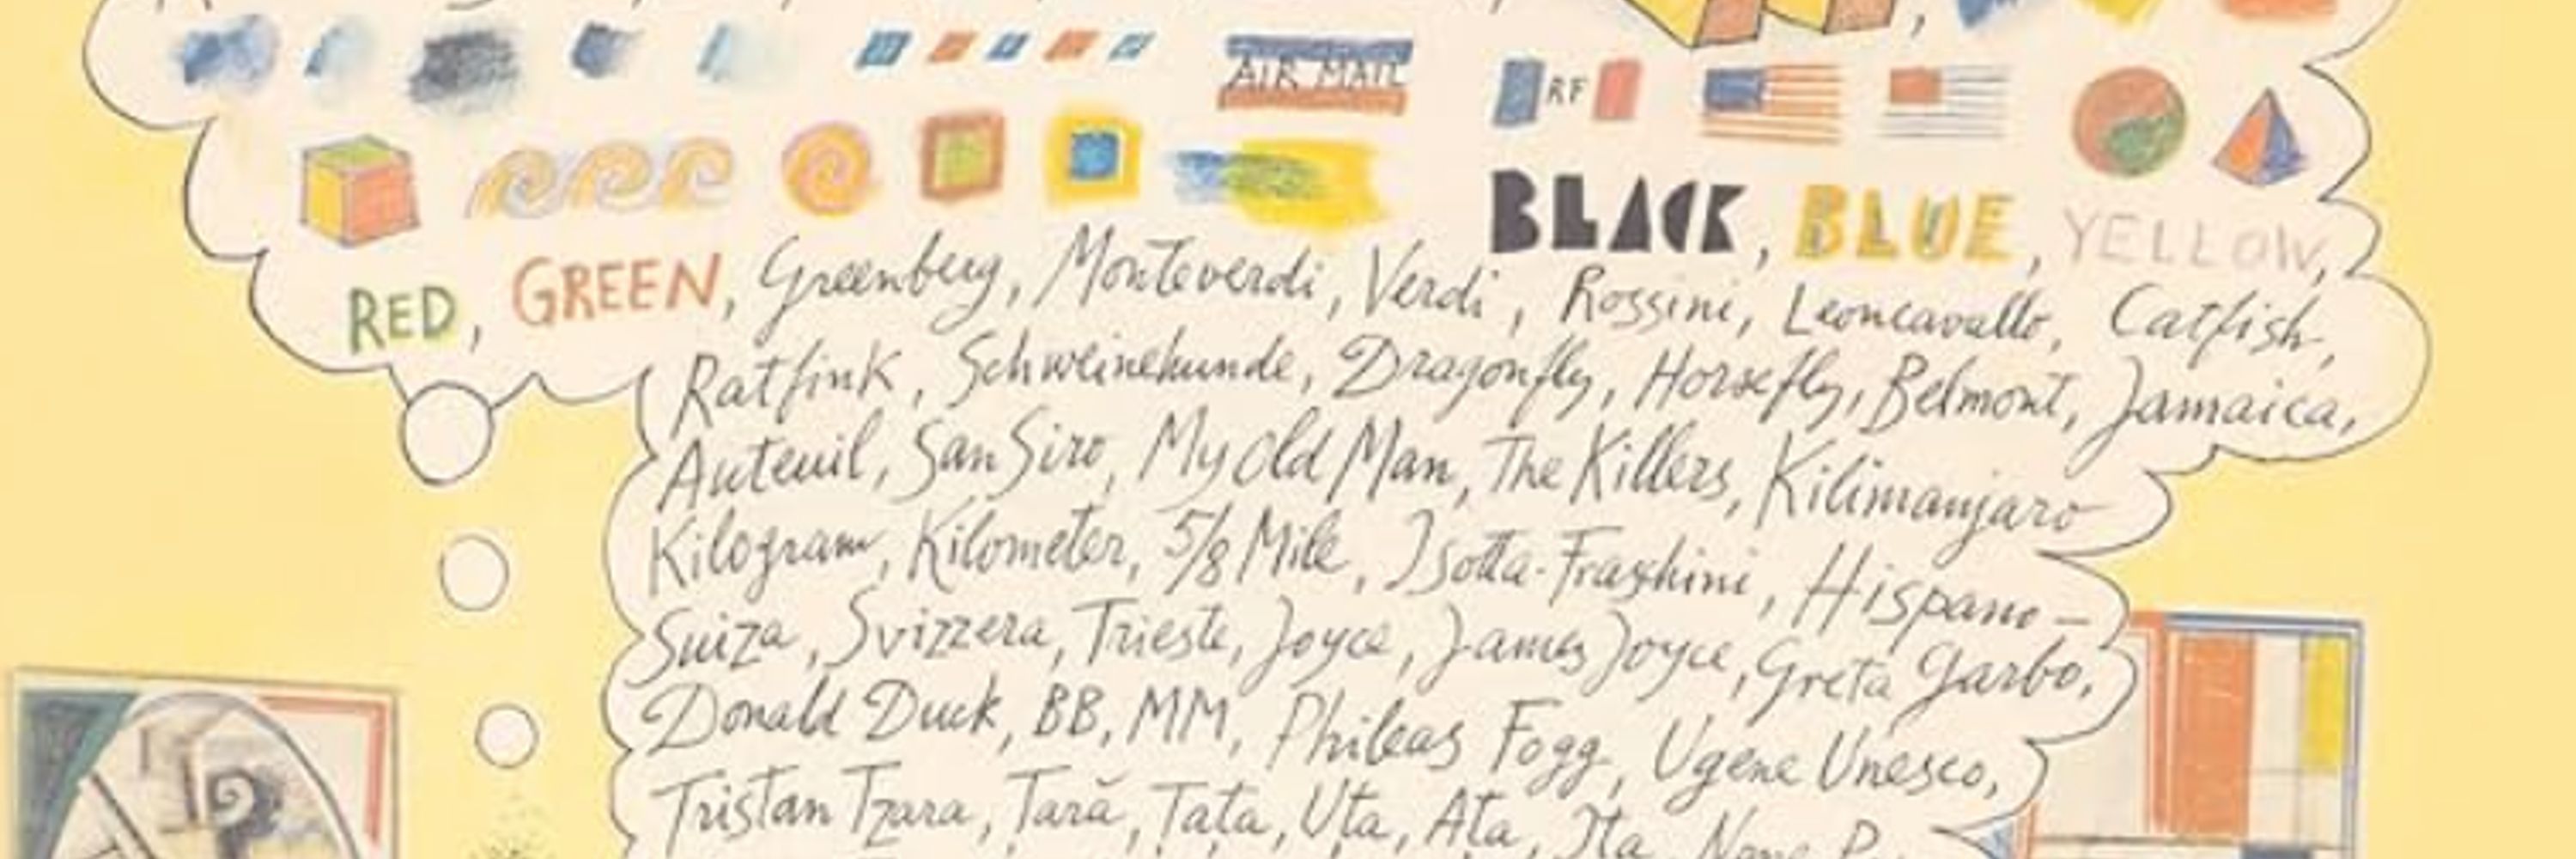 AIR MAIL
RF
BLACK, BLUE, YELLOW,
RED, GREEN, Greenberg, Monteverdi, Verdi, Rossini, Leoncavallo, Catfish,
Ratfink, Schweinehunde, Dragonfly, Horsefly, Belmont, Jamaica,
Auteuil, San Siro, My Old Man, The Killers, Kilimanjaro
Kilogram, Kilometer, 5/8 Mile, Isotta-Fraschini, Hispano-
Suiza, Svizzera, Trieste, Joyce, James Joyce, Greta Garbo,
Donald Duck, BB, MM, Phileas Fogg, Ugene Unesco,
Tristan Tzara, Tară, Tata, Uta, Ata, Ita,